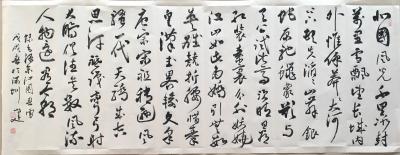 北国风光千里冰封
万里雪飘望长城内
外惟馀莽莽大河
上下顿失滔滔山舞银
蛇原驰蜡象欲与
天公试比高须晴日看
红装素裹分外妖娆
江山如此多娇引无数
英雄竞折腰惜秦
皇汉武略输文采
唐宗宋祖稍逊风
骚一代天骄成吉
思汗只识弯弓射
大雕俱往矣数风流
人物还看今朝
录毛泽东沁园春雪
戊戌年于深圳